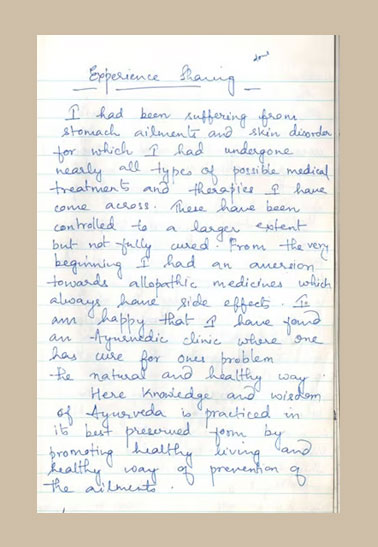 Experience Sharing
I had been suffering from
stomach ailments and skin disorder
for which I had undergone
nearly all types of possible medical
treatments and therapies I have
come across. These have been
controlled to a larger extent
but not fully cured. From the very
beginning I had an aversion
towards allopathic medicines which
always have side effects. I
am happy that I have found
an Ayurvedic clinic where one
has cure for ones problem
the natural and healthy way.
Here Knowledge and wisdom
of Ayurveda is practiced in
its best preserved form by
promoting healthy living and
healthy way of prevention of
the ailments.